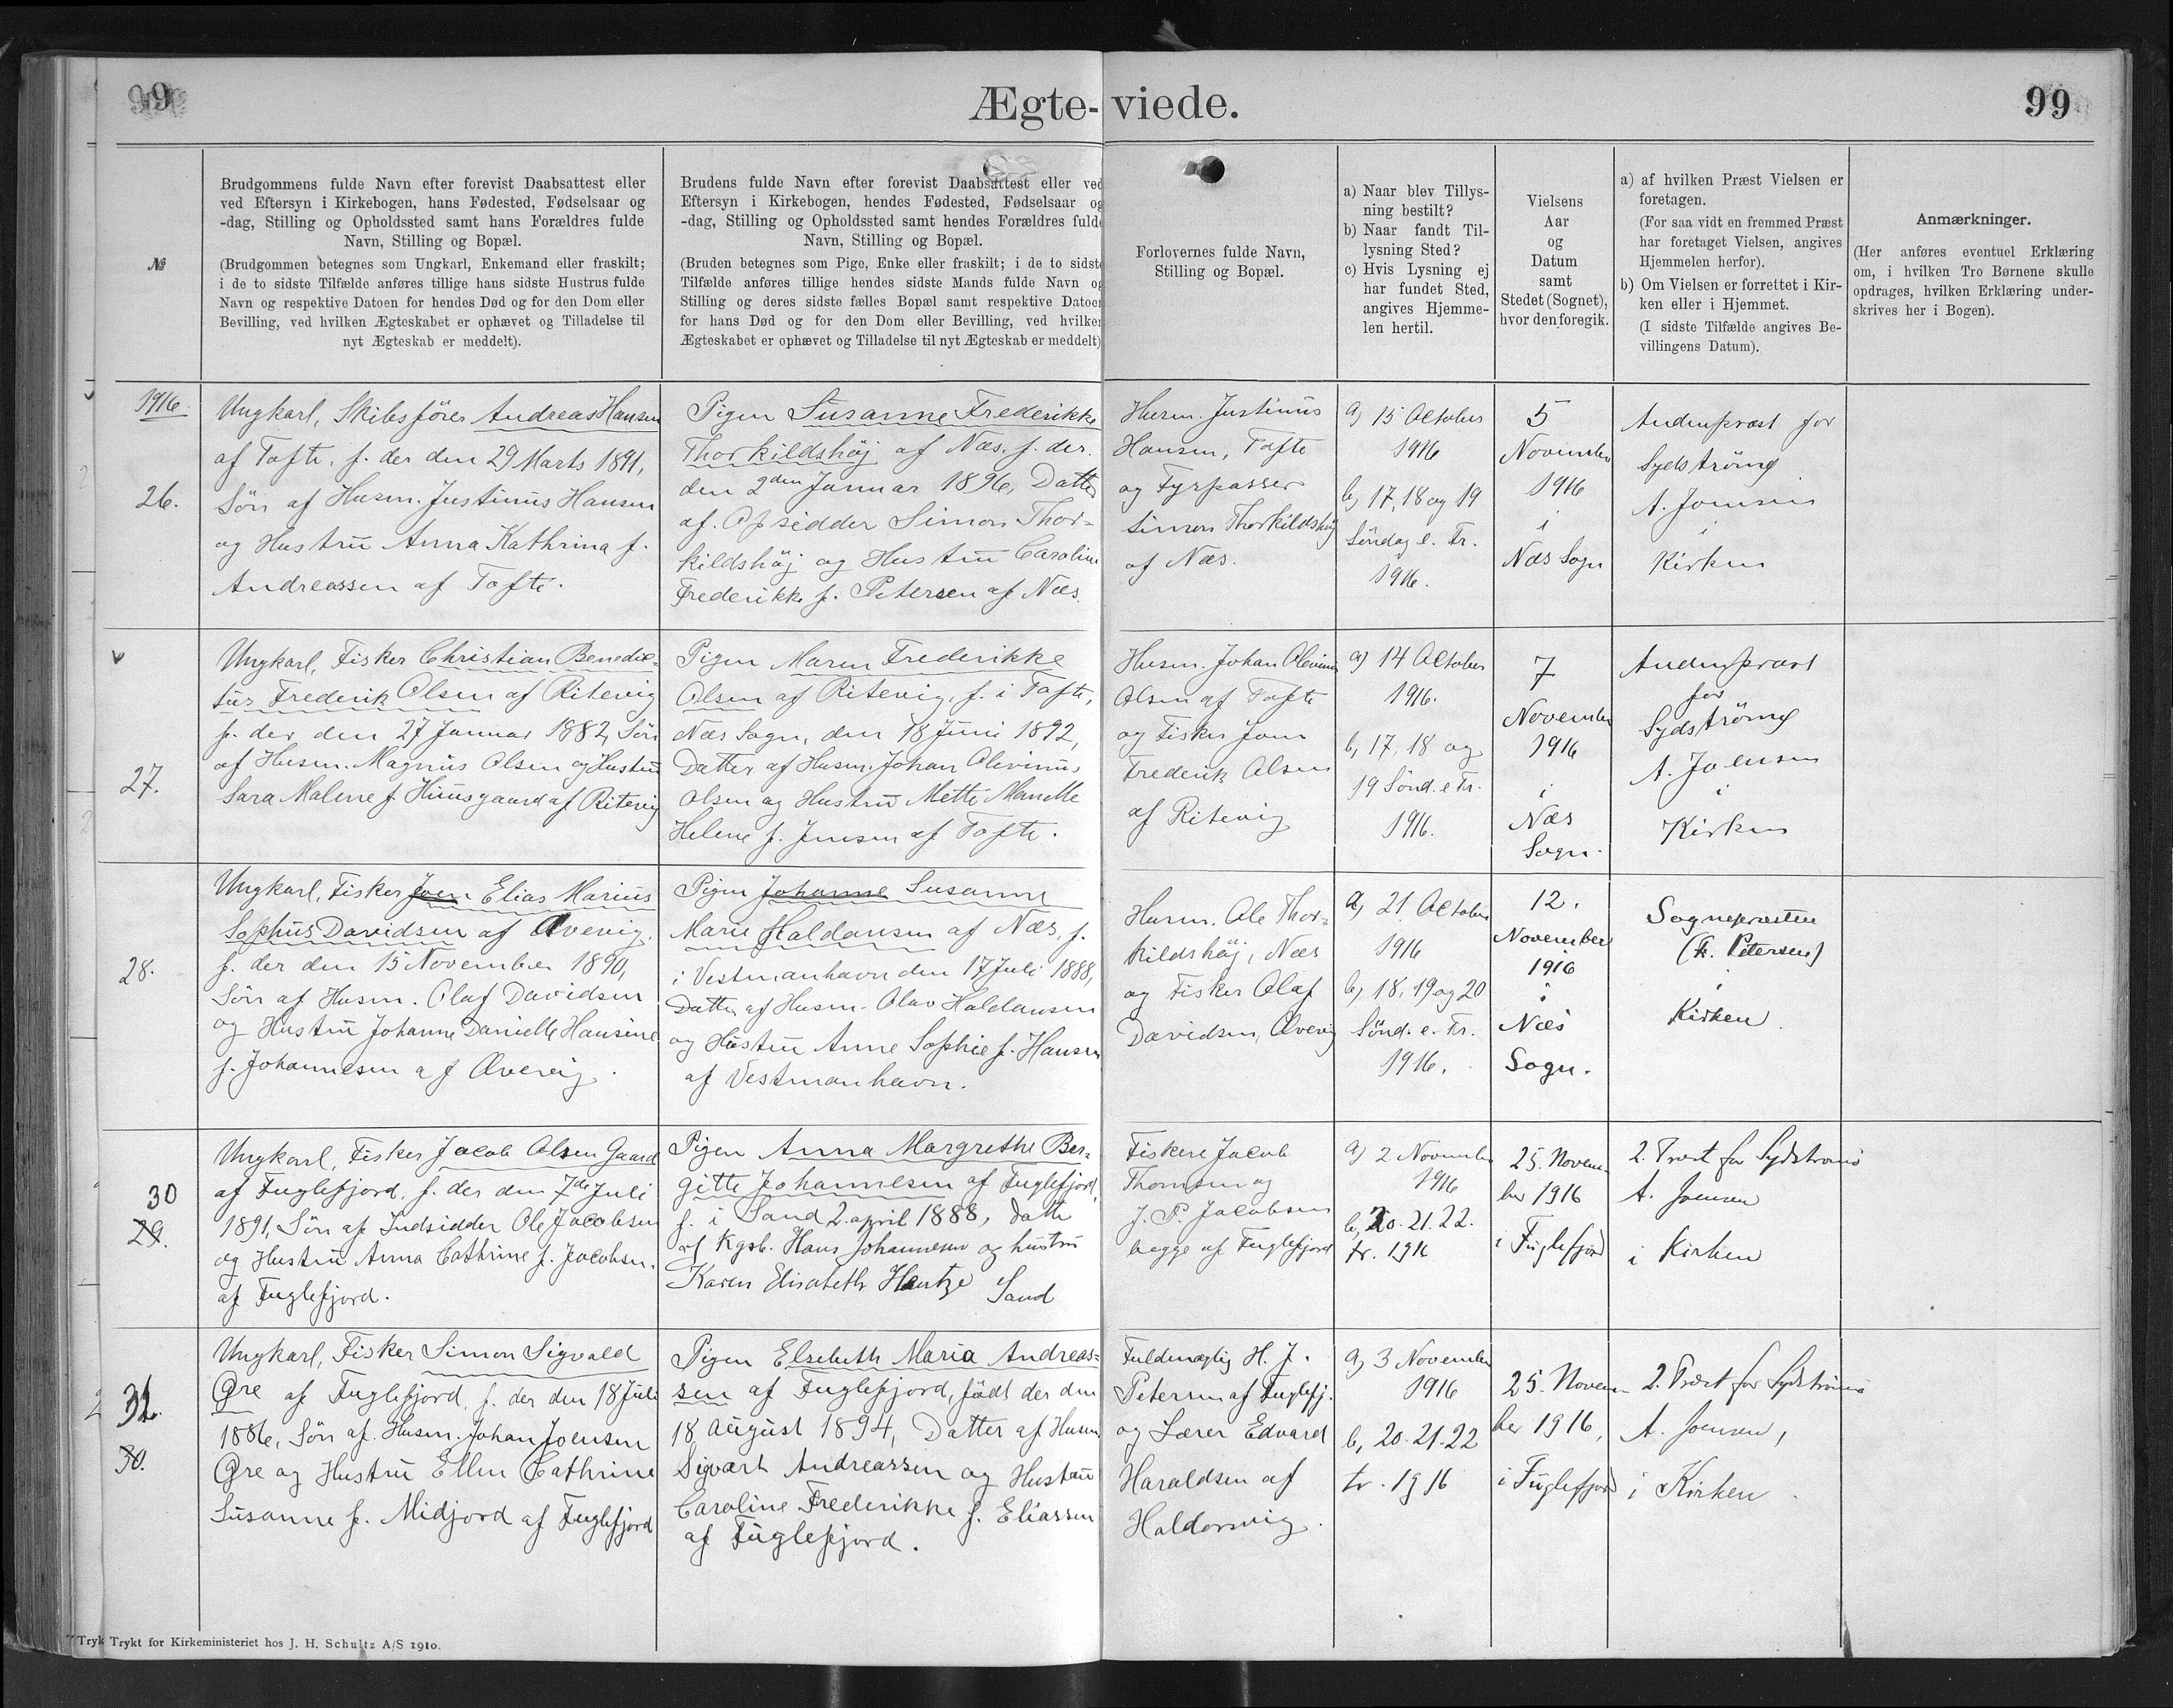 99
Ægte-viede.
99
№
Brudgommens fulde Navn efter forevist Daabsattest eller
ved Eftersyn i Kirkebogen, hans Fødested, Fødselsaar og
-dag, Stilling og Opholdssted samt hans Forældres fulde
Navn, Stilling og Bopæl.
(Brudgommen betegnes som Ungkarl, Enkemand eller fraskilt;
i de to sidste Tilfælde anføres tillige hans sidste Hustrus fulde
Navn og respektive Datoen for hendes Død og for den Dom eller
Bevilling, ved hvilken Ægteskabet er ophævet og Tilladelse til
nyt Ægteskab er meddelt).
Brudens fulde Navn efter forevist Daabsattest eller ved
Eftersyn i Kirkebogen, hendes Fødested, Fødselsaar og
-dag, Stilling og Opholdssted samt hendes Forældres fulde
Navn, Stilling og Bopæl.
(Bruden betegnes som Pige, Enke eller fraskilt; i de to sidste
Tilfælde anføres tillige hendes sidste Mands fulde Navn og
Stilling og deres sidste fælles Bopæl samt respektive Datoen
for hans Død og for den Dom eller Bevilling, ved hvilken
Ægteskabet er ophævet og Tilladelse til nyt Ægteskab er meddelt)
Forlovernes fulde Navn,
Stilling og Bopæl.
a) Naar blev Tillys-
ning bestilt?
b) Naar fandt Til-
lysning Sted?
c) Hvis Lysning ej
har fundet Sted,
angives Hjemme-
len hertil.
Vielsens
Aar
og
Datum
samt
Stedet (Sognet),
hvor den foregik.
a) af hvilken Præst Vielsen er
foretagen.
(For saa vidt en fremmed Præst
har foretaget Vielsen, angives
Hjemmelen herfor).
b) Om Vielsen er forrettet i Kir-
ken eller i Hjemmet.
(I sidste Tilfælde angives Be-
villingens Datum).
Anmærkninger.
(Her anføres eventuel Erklæring
om, i hvilken Tro Børnene skulle
opdrages, hvilken Erklæring under-
skrives her i Bogen).
1916
26.
Ungkarl, Skibsfører Andreas Hansen
af Tofte, f. der den 29 Marts 1891,
Søn af Husm. Justinus Hansen
og Hustru Anna Kathrina f.
Andreassen af Tofte.
Pigen Susanne Frederikke
Thorkildshøj af Næs. f. der.
den 2den Januar 1896, Datter
af Opsidder Simon Thor-
kildshøj og Hustru Caroline
Frederikke f. Petersen af Næs.
Husm. Justinus
Hansen, Tofte
og Fyrpasser
Simon Thorkildshøj
af Næs.
a, 15 October
1916
b, 17, 18 og 19
Søndag e. Tr.
1916.
5
November
1916
i
Næs Sogn
Andenpræst for
Sydstrømø
A. Joensen
i
Kirken
27.
Ungkarl, Fisker Christian Benedic-
tus Frederik Olsen af Ritevig
f. der den 27 Januar 1882, Søn
af Husm. Magnus Olsen og Hustru
Sara Malene f. Huusgaard af Ritevig
Pigen Maren Frederikke
Olsen af Ritevig, f. i Tofte,
Næs Sogn, den 18 Juni 1892,
Datter af Husm. Johan Olevinus
Olsen og Hustru Mette Manelle
Helene f. Jensen af Tofte.
Husm. Johan Olevinus
Olsen af Tofte
og Fisker Joen
Frederik Olsen
af Ritevig
a) 14 October
1916.
b, 17, 18 og
19 Sönd. e Tr.
1916.
7
November
1916
i
Næs
Sogn.
Andenpræst
for
Sydstrømø
A. Joensen
i
Kirken
28.
Ungkarl, Fisker Joen Elias Marius
Sophus Davidsen af Ævevig.
f. der den 15 November 1890,
Søn af Husm. Olaf Davidsen
og Hustru Johanne Danielle Hansine
f. Johannesen af Ævevig.
Pigen Johanne Susanne
Marie Haldansen af Næs, f.
i Vestmanhavn den 17 Juli 1888,
Datter af Husm. Olav Haldansen
og Hustru Anne Sophie f. Hansen
af Vestmanhavn.
Husm. Ole Thor-
kildshøj, Næs
og Fisker Olaf
Davidsen, Ævevig
a, 21 October
1916
b, 18, 19 og 20
Sönd. e. Tr.
1916.
12.
November
1916
i
Næs
Sogn.
Sognepræsten
(Fr. Petersen)
i
Kirken
30
29.
Ungkarl, Fisker Jacob Olsen Gaard
af Fuglefjord, f. der den 7de Juli
1891, Søn af Indsidder Ole Jacobsen
og Hustru Anna Cathrine f. Jacobsen.
af Fuglefjord.
Pigen Anna Margrethe Ber-
gitte Johannesen af Fuglefjord,
f. i Sand 2. april 1888, datter
af Kgsb. Hans Johannesen og hustru
Karen Elisabeth Hentze Sand
Fiskere Jacob
Thomsen og
J. P. Jacobsen
begge af Fuglefjord
a) 2 November
1916
b, 20. 21. 22.
tr. 1916
25. Novem-
ber 1916
i Fuglefjord
2. Præst for Sydstrømø
A. Joensen
i Kirken
31.
30.
Ungkarl, Fisker Simon Sigvald
Øre af Fuglefjord, f. der den 18 Juli
1886, Søn af Husm. Johan Joensen
Øre og Hustru Ellen Cathrine
Susanne f. Midjord af Fuglefjord
Pigen Elsebeth Maria Andreas-
sen af Fuglefjord, født der den
18 August 1894, Datter af Husm
Sigvart Andreassen og Hustru
Caroline Frederikke f. Eliassen
af Fuglefjord.
Fuldmægtig H. J.
Petersen af Fuglefj.
og Lærer Edvard
Haraldsen af
Haldorsvig.
a, 3 November
1916
b, 20. 21. 22
tr. 1916
25. Novem-
ber 1916,
i Fuglefjord
2. Præst for Sydstrømø
A. Joensen,
i Kirken.
Trykt for Kirkeministeriet hos J. H. Schultz A/S 1910.